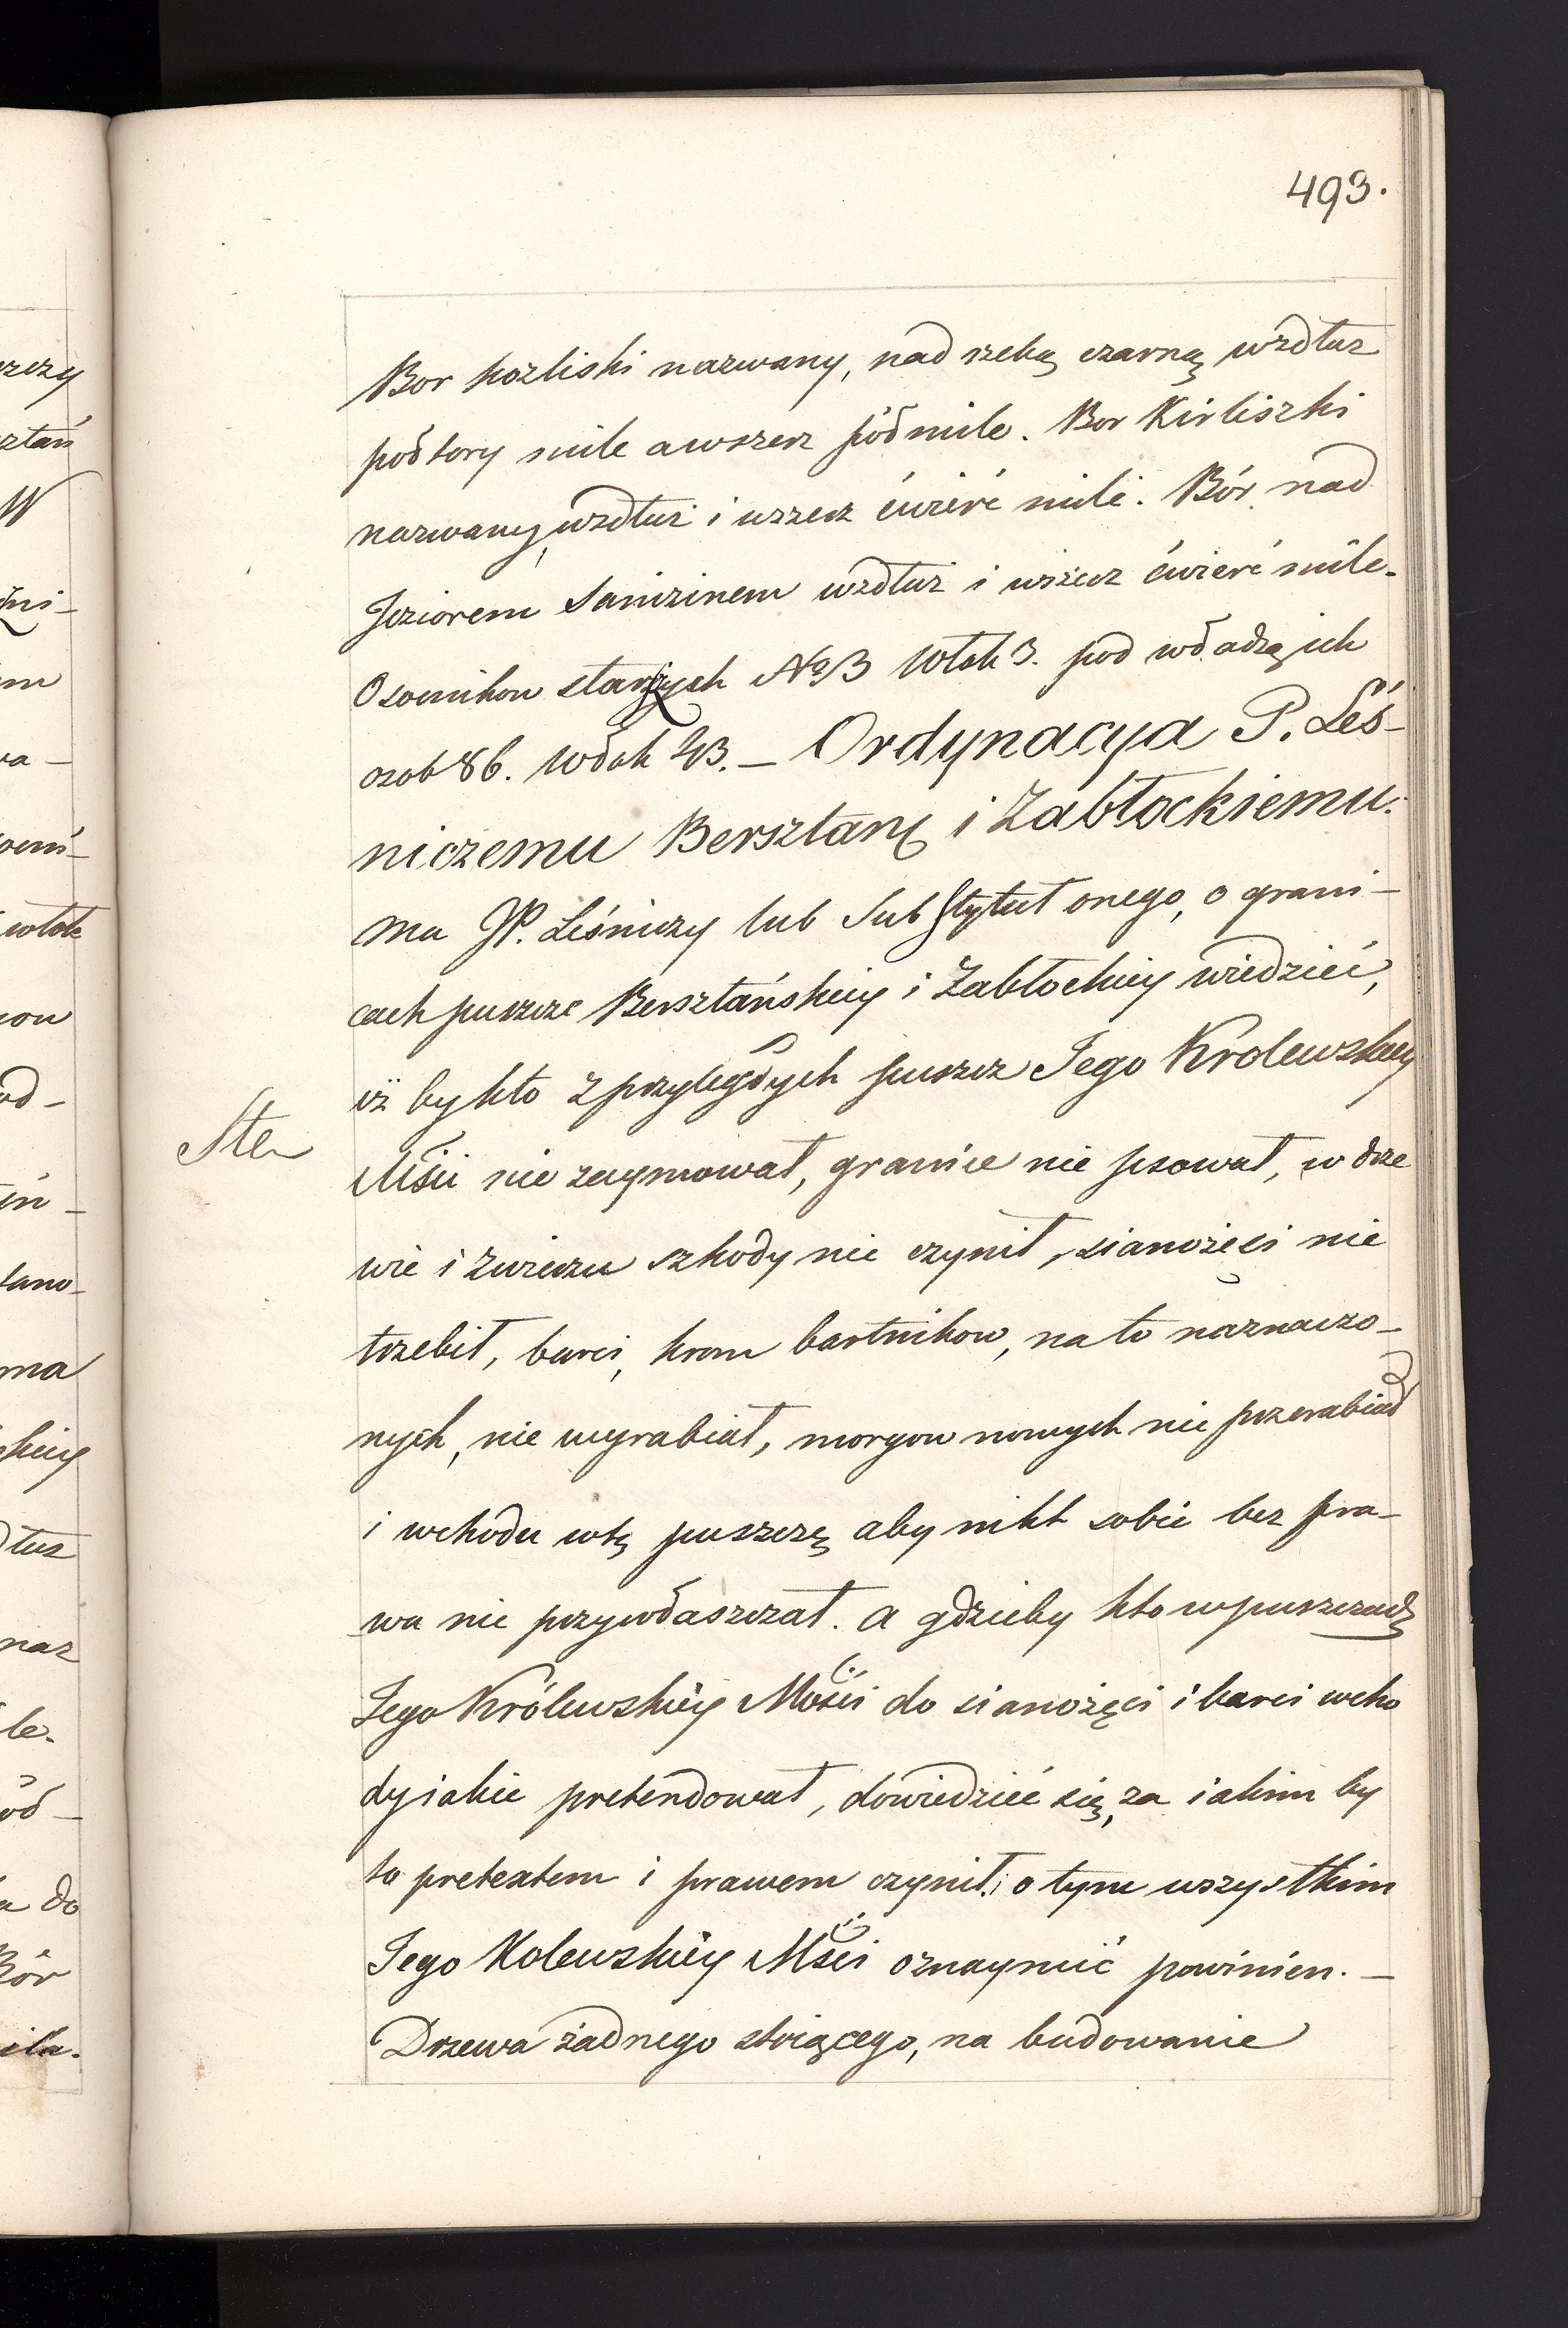 493.
Bor kozliski nazwany, nad rzeką czarną wzdłuz
połtory mile a wszerz półmile. Bor Kirliszki
nazwany, wzdłuż i wszerz ćwierć mili. Bór nad
Jeziorem Samzinem wzdłuż i wszerz ćwierć mile.
Osocnikow starszych No 3 włok 3. pod władzą ich
osob 86. włok 43. — Ordynacya P. Leś-
niczemu Bersztanſ i Zabłockiemu.
Ma JP. Leśniczy lub Substytut onego, o grani-
cach puszcze Bersztańskiey i Zabłockiey wiedzieć,
iż by kto z przyległych puszcz Jego Krolewskiey
Mści nie zaymował, granice nie psował, w drze
wie i zwierzu szkody nie czynił, sianożęci nie
trzebił, barci, krom bartnikow, na to naznaczo-
nych, nie wyrabiał, morgow nowych nie przerabiał
i wchodu w tę puszczę aby nikt sobie bez pra-
wa nie przywłaszczał. a gdzieby kto w puszczach
Jego Królewskiéy Mości do sianożęci i barci wcho
dy iakie pretendował, dowiedzieć się, za iakim by
to pretextem i prawem czynił; o tym wszystkim
Jego Kolewskiéy Mści oznaymić powinien. —
Drzewa żadnego stoiącego, na budowanie
Ste